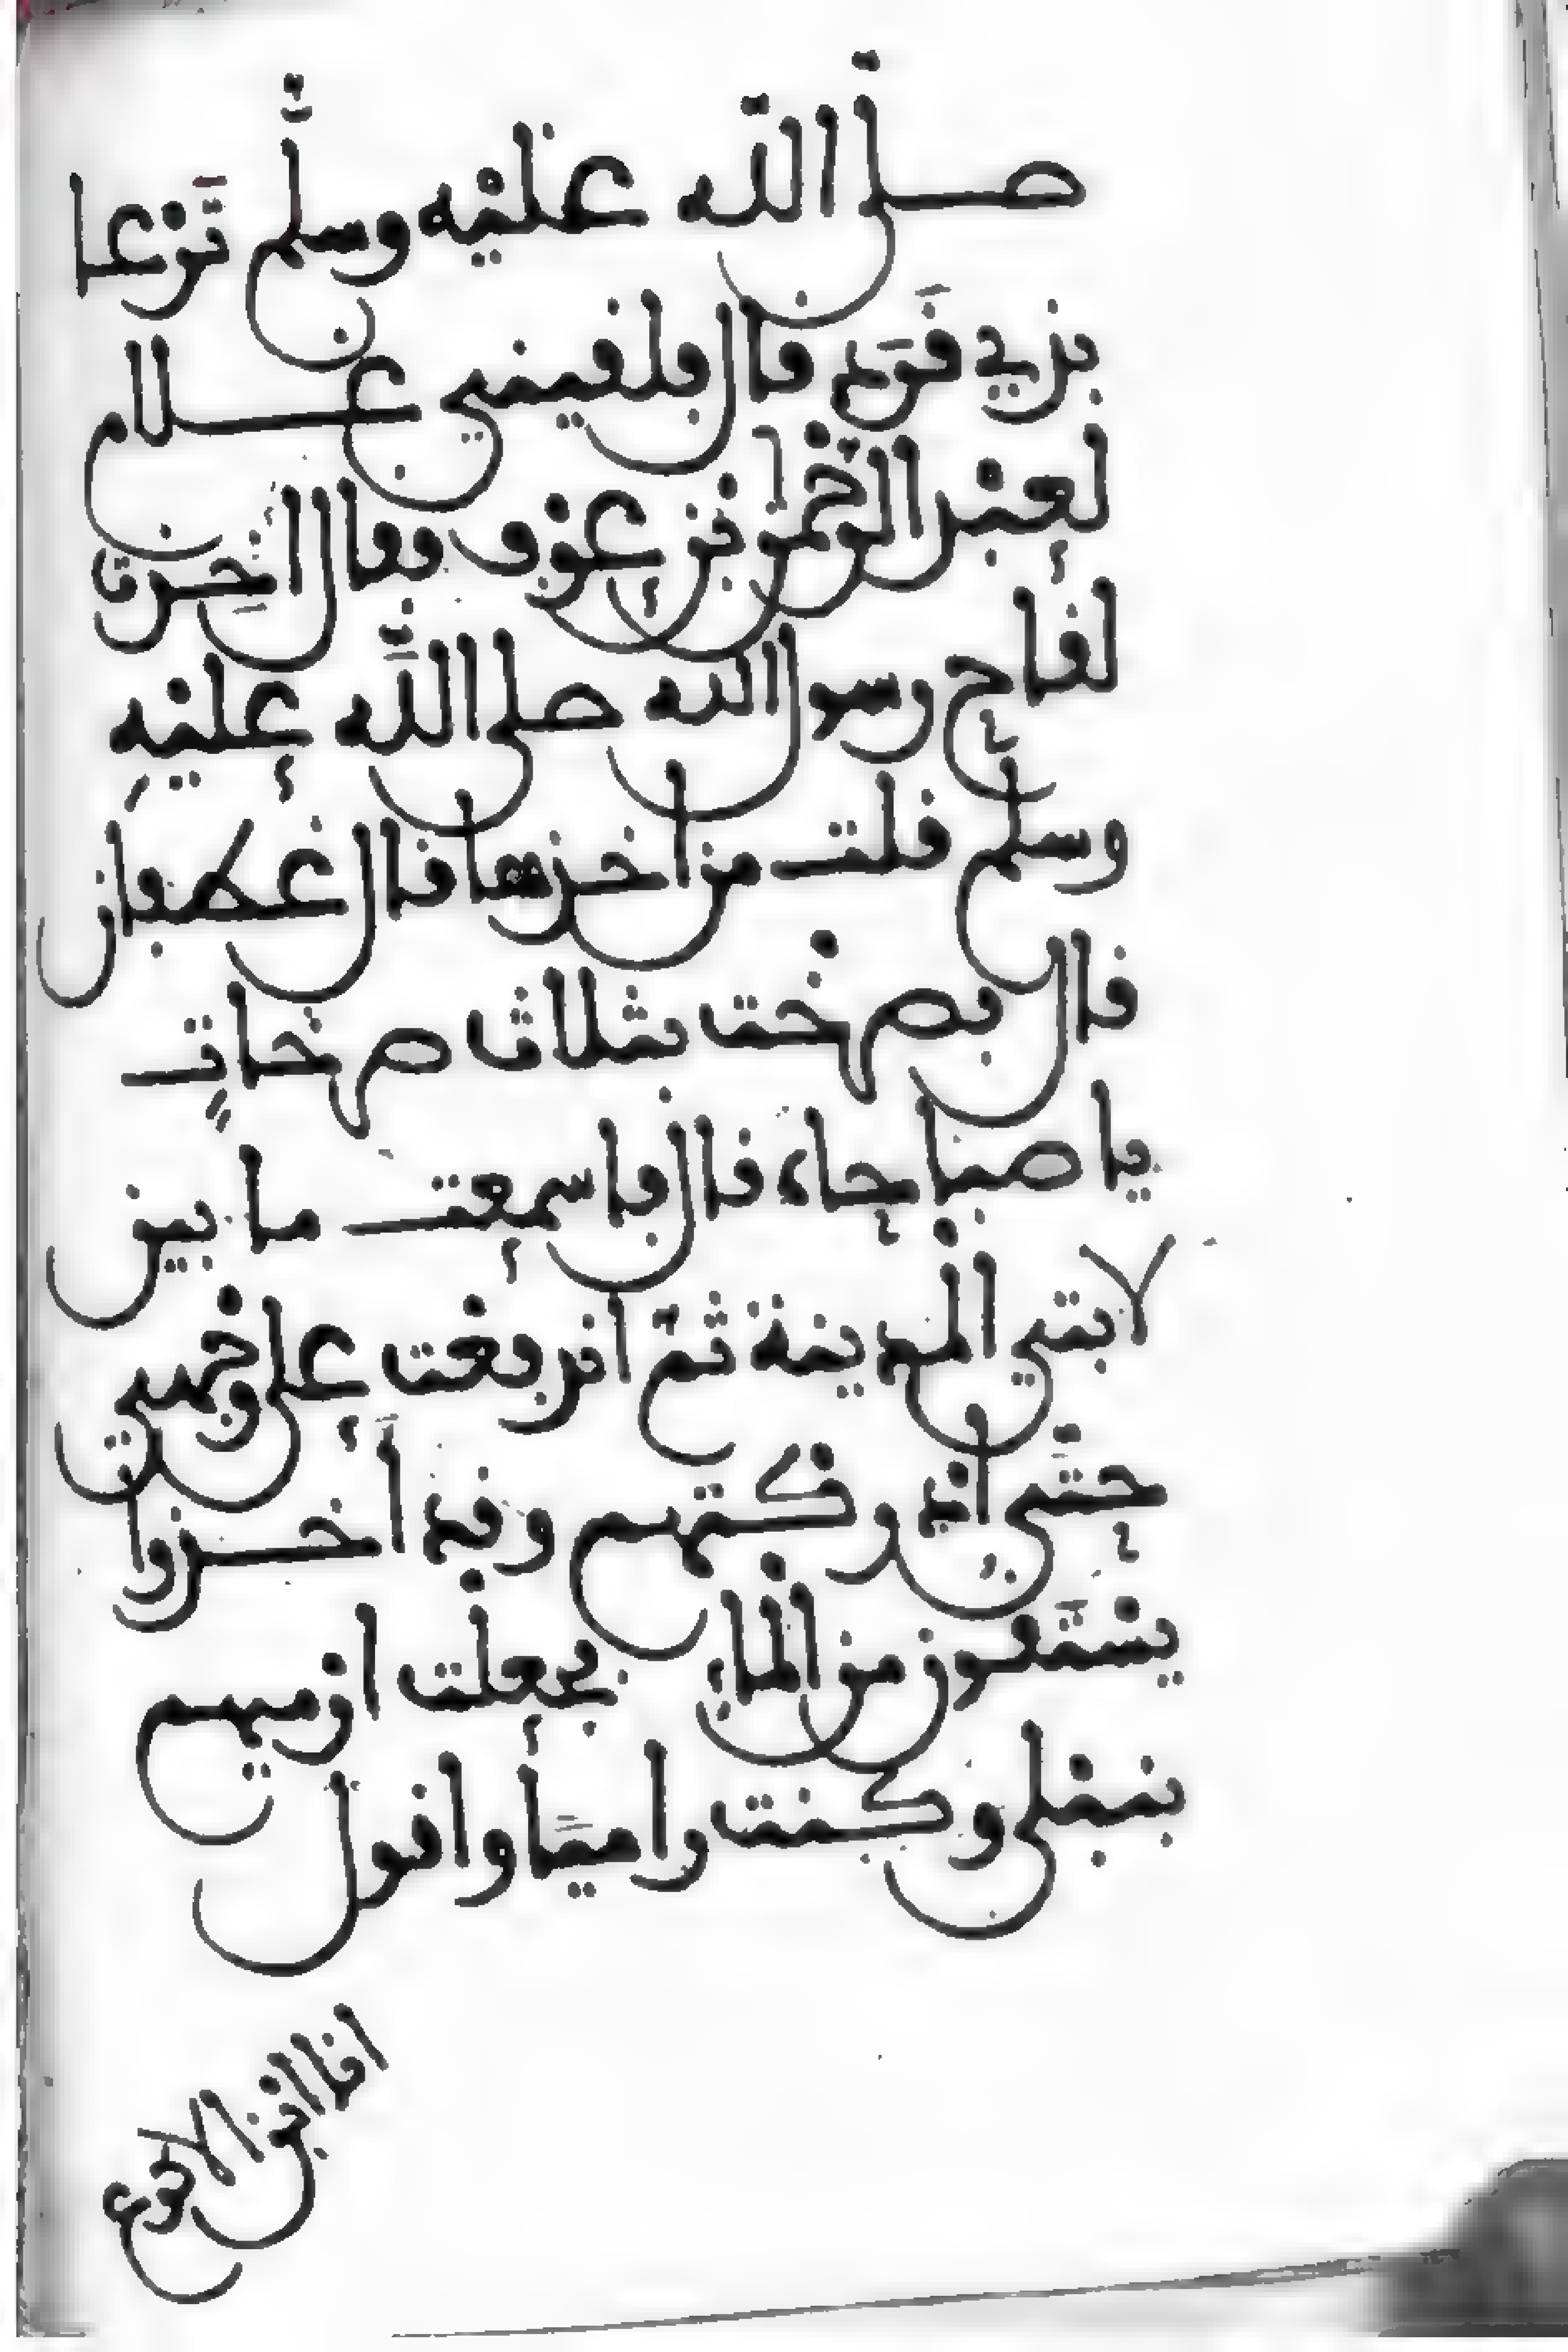 صلى الله عليه وسلم ترعا
بذي قرد قال فلقيني غلام
لعبد الرحمن بن عوف فقال اخذت
لفاح رسول الله صلى الله عليه
وسلم فلت من اخذها قال غطفان
قال فصرخت ثلاث صرخات
يا صباحاه قال فاسمعت ما بين
لابتي المدينة ثم اندفعت على وجهي
حتى ادركتهم وقد أخذوا
يستقون من الماء فجعلت ارميهم
بنبلي وكنت راميا واقول
انا ابن الاكوع